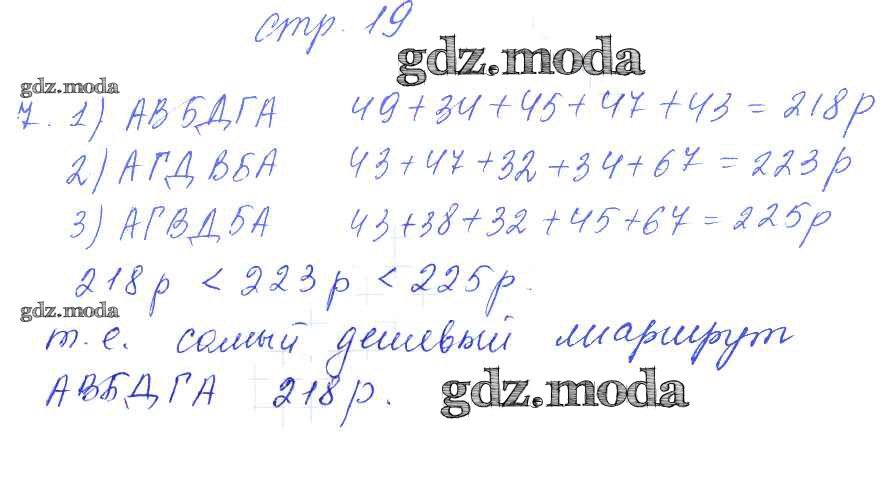 стр. 19
gdz.moda
gdz.moda
7. 1) АВБДГА 49+34+45+47+43 = 218р
2) АГДВБА 43+47+32+34+67 = 223р
3) АГВДБА 43+38+32+45+67 = 225р
218р < 223р < 225р.
gdz.moda
т.е. самый дешевый маршрут
АВБДГА 218р.
gdz.moda